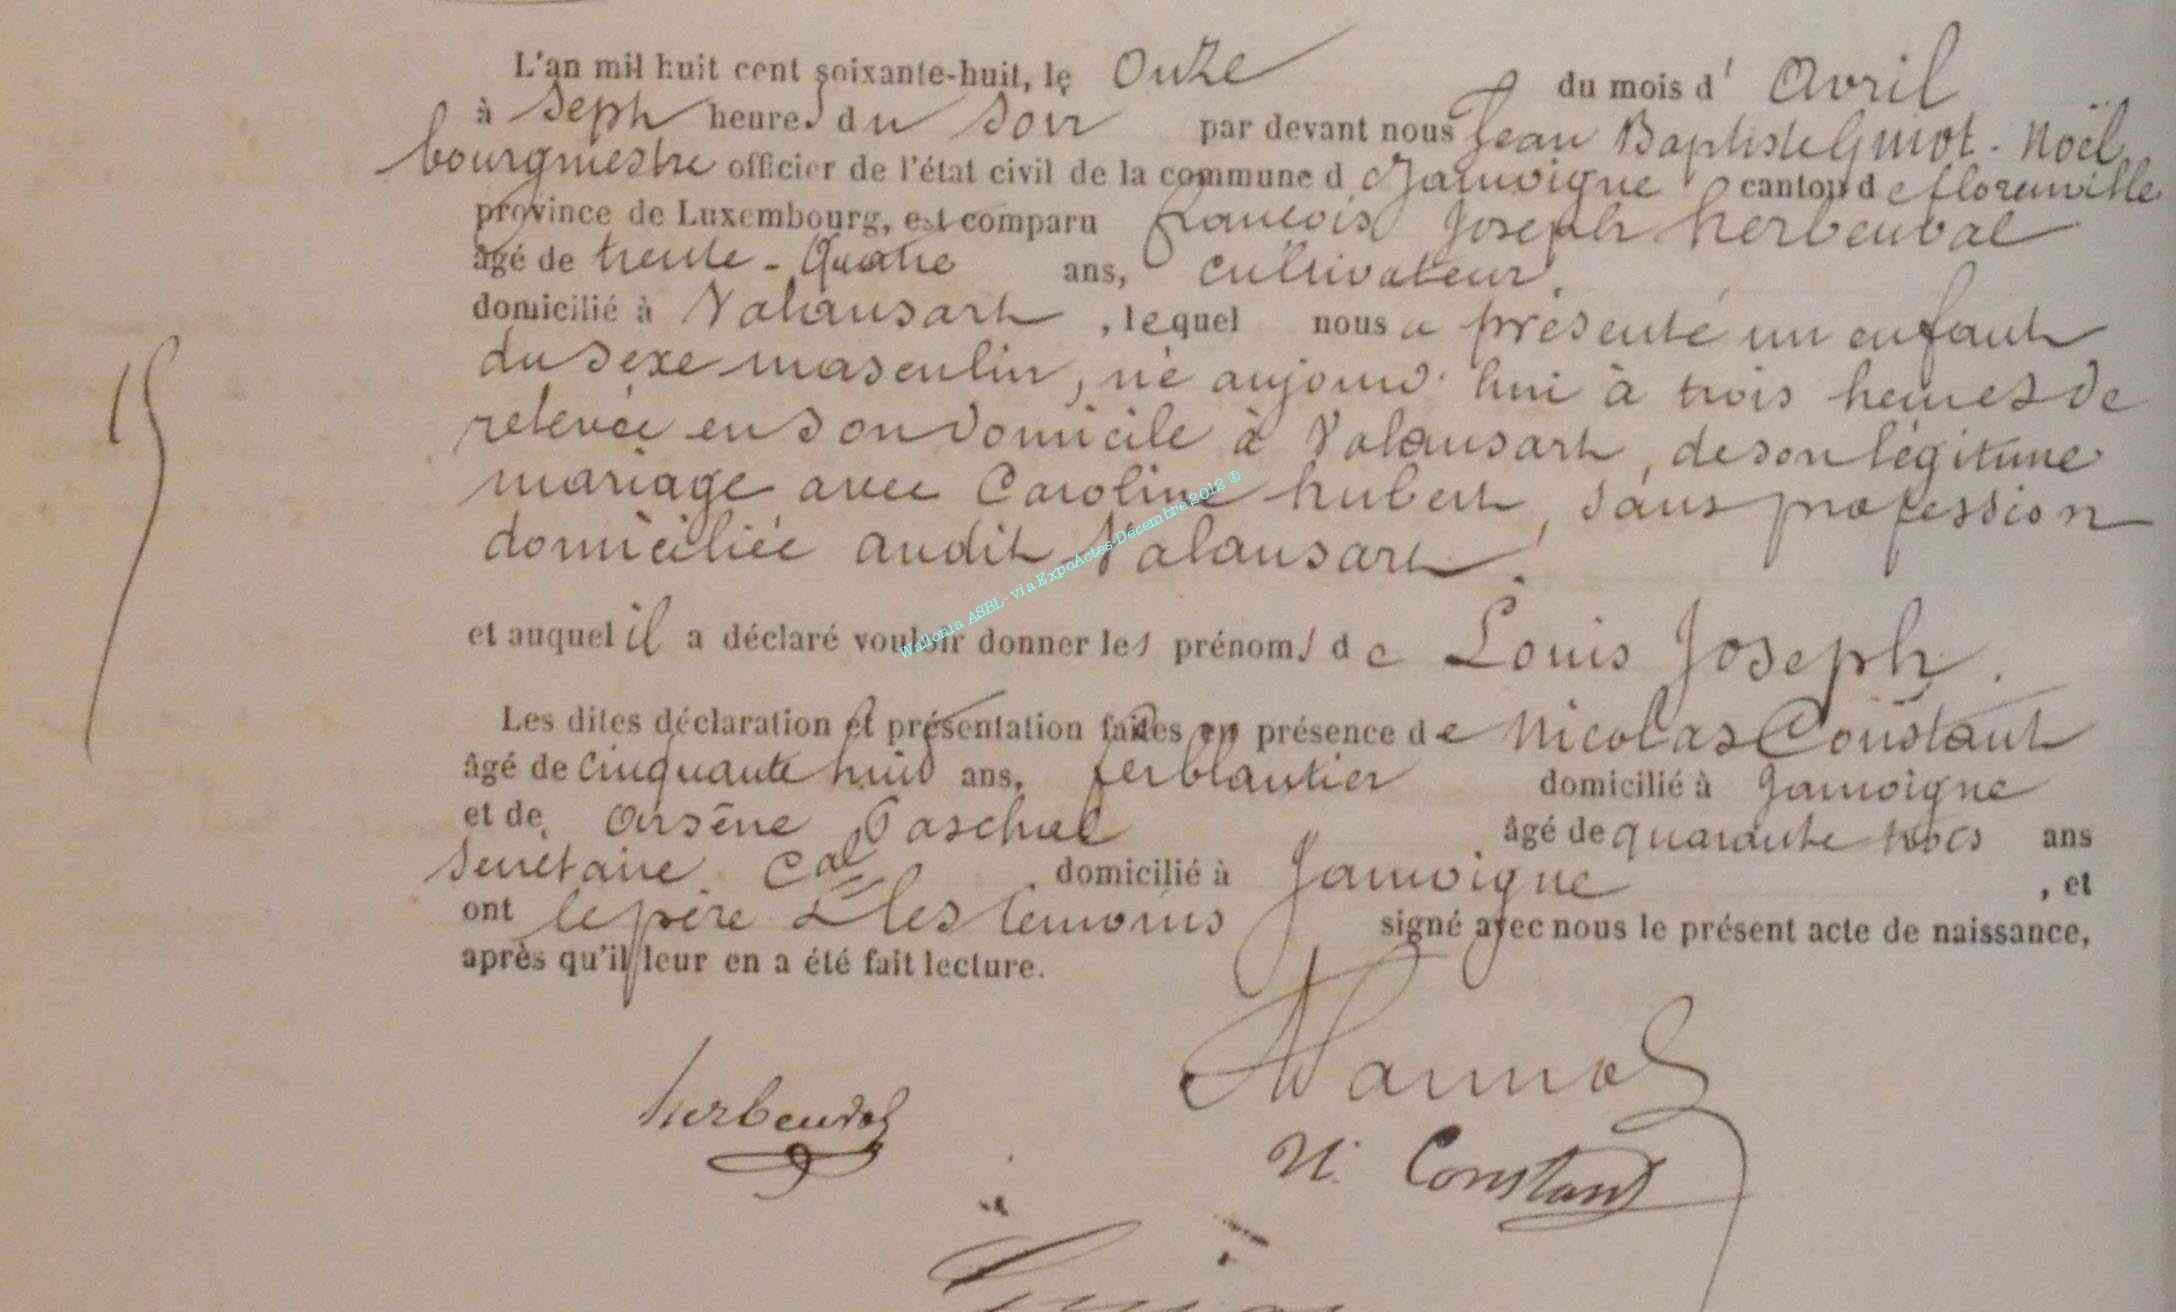 L'an mil huit cent soixante-huit, le Onze du mois d' Avril
à Sept heures du Soir par devant nous Jean Baptiste Guiot - Noël
bourgmestre officier de l'état civil de la commune d Jamoigne canton de florenville
province de Luxembourg, est comparu françois Joseph herbeuval
âgé de trente - Quatre ans, cultivateur,
domicilié à Valansart, lequel nous a présenté un enfant
du Sexe masculin, né aujourd'hui à trois heures de
relevée en son domicile à Valansart, de son légitime
mariage avec Caroline hubert, sans profession
domiciliée audit Valansart.
et auquel il a déclaré vouloir donner les prénoms de Louis Joseph.
Les dites déclaration et présentation faites en présence de Nicolas Constant
âgé de cinquante huit ans, ferblantier domicilié à Jamoigne
et de Arsène âgé de quarante trois ans
Secrétaire Cal domicilié à Jamoigne, et
ont le père & les temoins signé avec nous le présent acte de naissance,
après qu'il leur en a été fait lecture.
15
herbeuval
N. Constant
Wallonia ASBL - via ExpoActes-Décembre 2012 ®